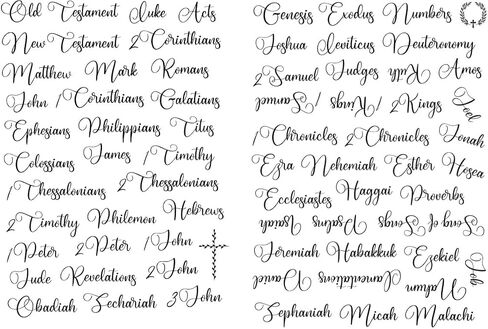 Old Testament Luke Acts
New Testament 2 Corinthians
Matthew Mark Romans
John 1 Corinthians Galatians
Ephesians Philippians Titus
Colossians James 1 Timothy
1 Thessalonians 2 Thessalonians
2 Timothy Philemon Hebrews
1 Peter 2 Peter 1 John
Jude Revelations 2 John
Obadiah Zechariah 3 John
Genesis Exodus Numbers
Joshua Leviticus Deuteronomy
2 Samuel Judges Ruth Amos
1 Samuel 1 Kings 2 Kings Joel
1 Chronicles 2 Chronicles Jonah
Ezra Nehemiah Esther Hosea
Ecclesiastes Haggai Proverbs
Isaiah Psalms Song of Songs
Jeremiah Habakkuk Ezekiel Job
Daniel Lamentations Nahum
Zephaniah Micah Malachi